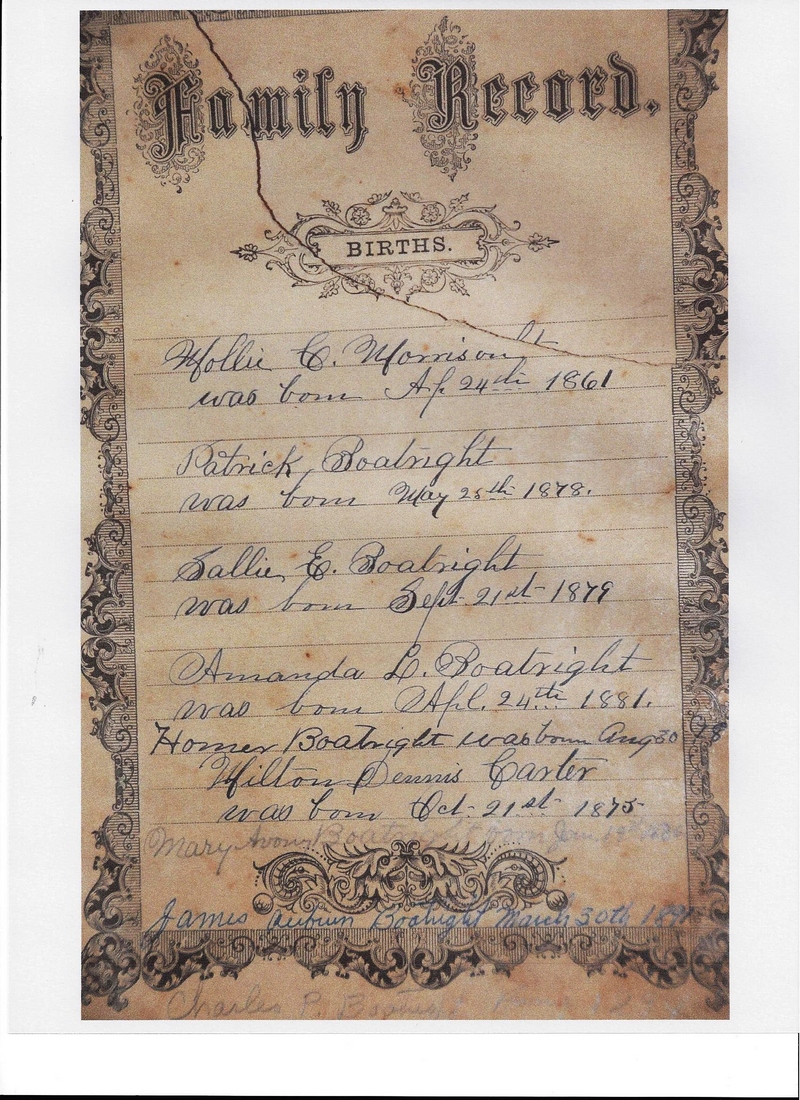 Family Record.
BIRTHS.
Mollie C. Morrison
was born Ap 24th 1861
Patrick Boatright
was born May 25th 1878.
Sallie E. Boatright
was born Sept 21st 1879
Amanda L. Boatright
was born Apl. 24th 1881.
Homer Boatright was born Aug 30
Milton Dennis Carter
was born Oct. 21st 1875
Mary Boatright born Jan 19th
James Boatright March 30th
Charles P.